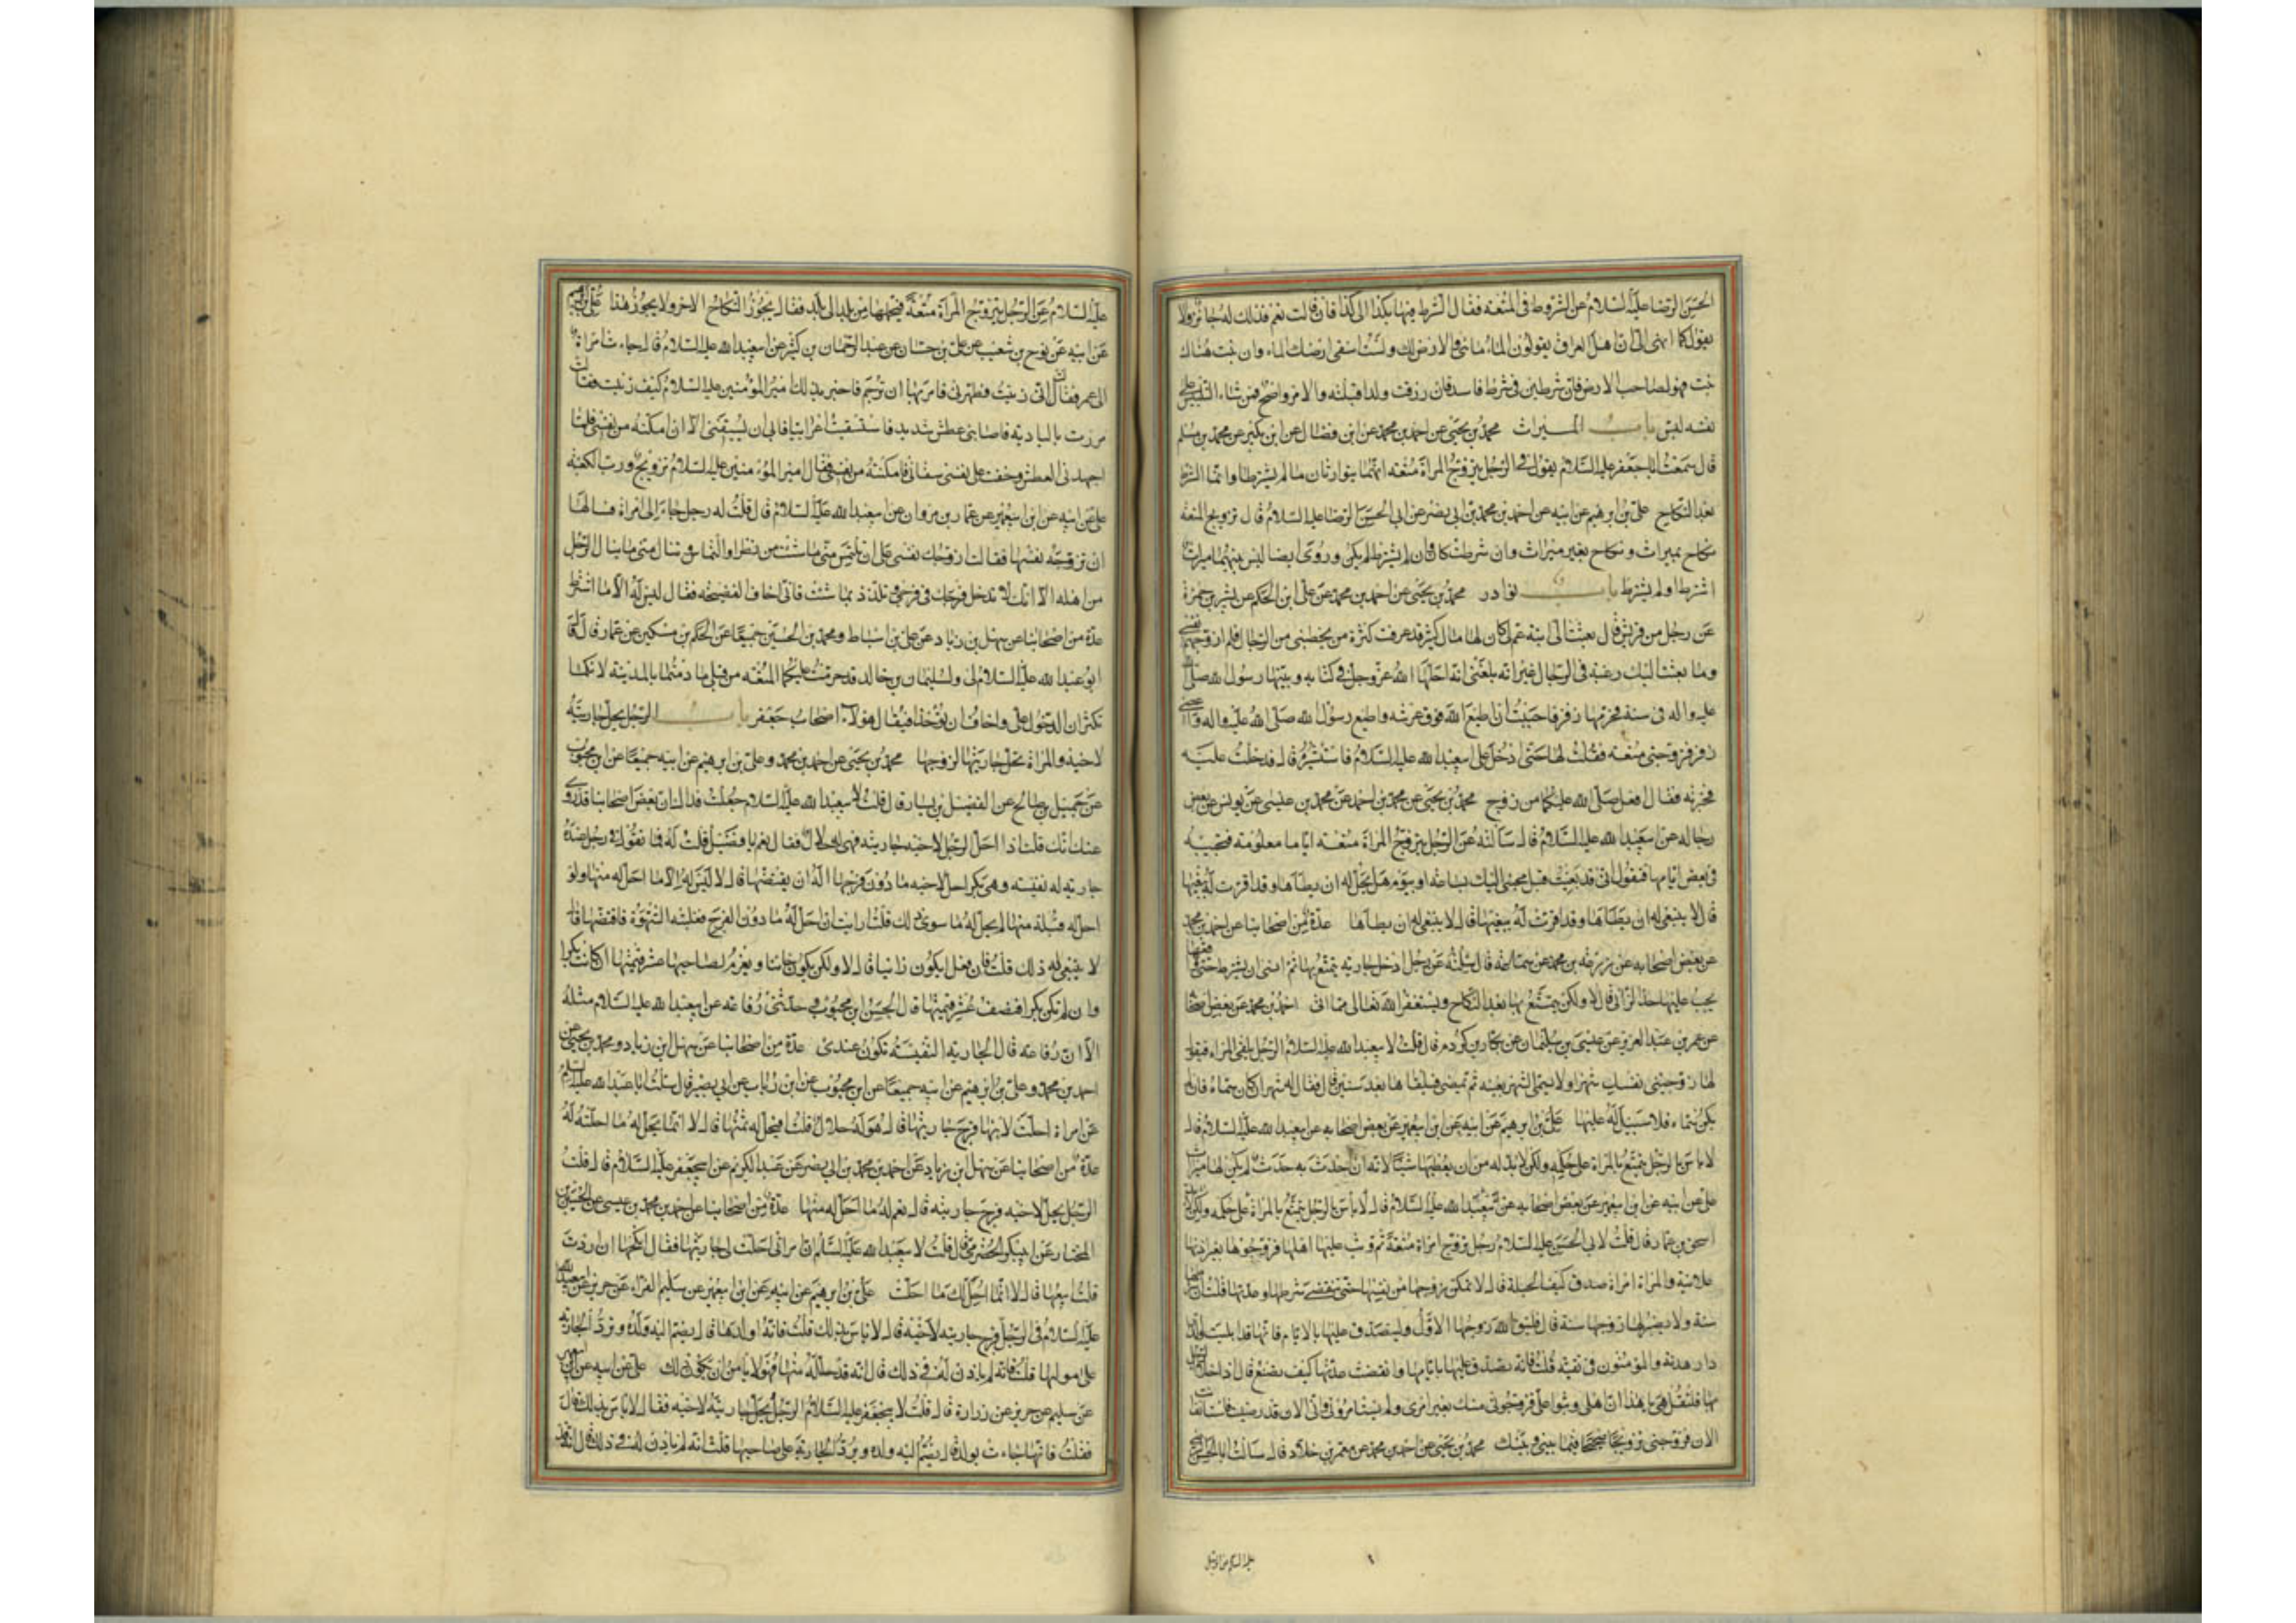 الحسين الرضا عليه السلام عن الشروط في المتعة فقال الشرط فيها بكذا الى كذا فان قالت نعم فذلك له جائز ولا
يقول كما انهى الى ان اهل العراق يقولون الماء مائي والارض لك ولست اسقي ارضك الماء وان نبت هناك
نبت فهو لصاحب الارض فان شرطين في شرط فاسد فان رزقت ولدا قبله والامر واضح فمن شاء التلبيس على
نفسه لبس باب الميراث محمد بن يحيى عن احمد بن محمد عن ابن فضال عن ابن بكير عن محمد بن مسلم
قال سمعت ابا جعفر عليه السلام يقول في الرجل يتزوج المراة متعة انهما يتوارثان ما لم يشترطا وانما الشرط
بعد النكاح علي بن ابرهيم عن ابيه عن احمد بن محمد بن ابي نصر عن ابي الحسن الرضا عليه السلام قال تزويج المتعة
نكاح بميراث ونكاح بغير ميراث وان شرطت كان وان لم يشترط لم يكن وروى ايضا ليس بينهما ميراث
اشترط او لم يشترط باب نوادر محمد بن يحيى عن احمد بن محمد عن علي ابن الحكم عن بشر بن حمزة
عن رجل من قريش قال بعثت الي ابنة عم لي كان لها مال كثير قد عرفت كثرة من يخطبني من الرجال فلم ازوجهم نفسي
وما بعثت اليك رغبة في الرجال غير انه بلغني انه احلها الله عز وجل في كتابه وبينها رسول الله صلى الله
عليه واله في سنته فحرمها زفر فاحببت ان اطيع الله فوق عرشه واطيع رسول الله صلى الله عليه واله واعصي
زفر فتزوجني متعة فقلت لها حتى ادخل على ابي عبد الله عليه السلام فاستشيره قال فدخلت عليه
فخبرته فقال افعل صلى الله عليكما من زوج محمد بن يحيى عن محمد بن احمد عن محمد بن عيسى عن يونس عن بعض
رجاله عن ابي عبد الله عليه السلام قال سالته عن الرجل يتزوج المراة متعة اياما معلومة فتجيئه
في بعض ايامها فتقول اني قد بغيت قبل مجيئي اليك بساعة او بيوم هل يحل له ان يطاها وقد اقرت له ببغيها
قال لا ينبغي له ان يطاها وقد اقرت له ببغيها قال لا ينبغي له ان يطاها عدة من اصحابنا عن احمد بن محمد
عن بعض اصحابه عن زرعة بن محمد عن سماعة قال سالته عن رجل ادخل جارية يتمتع بها ثم انسى ان يشترط حتى واقعها
يجب عليها حد الزاني قال لا ولكن يتمتع بها بعد النكاح ويستغفر الله تعالى مما اتى احمد بن محمد عن بعض اصحابنا
عن عمر بن عبد العزيز عن عيسى بن سليمان عن بكار بن كردم قال قلت لابي عبد الله عليه السلام الرجل يلقى المراة فيقول
لها زوجيني نفسك شهرا ولا يسمي الشهر بعينه ثم يمضي فيلقاها بعد سنين قال فقال له شهره ان كان سماه فان لم
يكن سماه فلا سبيل له عليها علي بن ابرهيم عن ابيه عن ابن ابي عمير عن بعض اصحابه عن ابي عبد الله عليه السلام قال
لا باس بالرجل يتمتع بالمراة على حكمه ولكن لابد له من ان يعطيها شيئا لانه ان احدث به حدث لم يكن لها ميراث
علي عن ابيه عن ابن ابي عمير عن بعض اصحابه عن ابي عبد الله عليه السلام قال لا باس بالرجل يتمتع بالمراة على حكمه ولكن
اسحق بن عمار قال قلت لابي الحسن عليه السلام رجل تزوج امراة متعة ثم وثب عليها اهلها فزوجوها بغير اذنها
علانية والمراة امراة صدق كيف الحيلة قال لا تمكن زوجها من نفسها حتى ينقضي شرطها وعدتها قلت ان شرطها
سنة ولا يصبر لها زوجها سنة قال فليتق الله زوجها الاول وليتصدق عليها بالايام فانها قد ابتليت والدار
دار هدنة والمؤمنون في تقية قلت فانه تصدق عليها بايامها وانقضت عدتها كيف تصنع قال اذا خلا الرجل
بها فلتقل هي يا هذا ان اهلي وثبوا علي فزوجوني منك بغير امري ولم يستامروني واني الان قد رضيت فاستانف انت
الان فزوجني تزويجا صحيحا فيما بيني وبينك محمد بن يحيى عن احمد بن محمد عن معمر بن خلاد قال سالت ابا الحسن الرضا
عليه السلام عن الرجل
عليه السلام عن الرجل يتزوج المراة متعة فيحملها من بلد الى بلد فقال يجوز النكاح الاخر ولا يجوز هذا علي بن ابرهيم
عن ابيه عن نوح بن شعيب عن علي بن حسان عن عبد الرحمان بن كثير عن ابي عبد الله عليه السلام قال جاءت امراة
الى عمر فقالت اني زنيت فطهرني فامر بها ان ترجم فاخبر بذلك امير المؤمنين عليه السلام كيف زنيت فقالت
مررت بالبادية فاصابني عطش شديد فاستسقيت اعرابيا فابى ان يسقيني الا ان امكنه من نفسي فلما
اجهدني العطش وخفت على نفسي سقاني فامكنته من نفسي فقال امير المؤمنين عليه السلام تزويج ورب الكعبة
علي عن ابيه عن ابن ابي عمير عن عمار بن مروان عن ابي عبد الله عليه السلام قال قلت له رجل جاء الى امراة فسالها
ان تزوجه نفسها فقالت ازوجك نفسي على ان تلتمس مني ما شئت من نظر او التماس وتنال مني ما ينال الرجل
من اهله الا انك لا تدخل فرجك في فرجي وتلذذ بما شئت فاني اخاف الفضيحة فقال ليس له الا ما اشترط
عدة من اصحابنا عن سهل بن زياد عن علي بن اسباط ومحمد بن الحسين جميعا عن الحكم بن مسكين عن عمار قال قال
ابو عبد الله عليه السلام لي ولسليمان بن خالد قد حرمت عليكما المتعة من قبلي ما دمتما بالمدينة لانكما
تكثران الدخول علي واخاف ان تؤخذا فيقال هؤلاء اصحاب جعفر باب الرجل يحل جاريته
لاخيه والمراة تحل جاريتها لزوجها محمد بن يحيى عن احمد بن محمد وعلي بن ابرهيم عن ابيه جميعا عن ابن محبوب
عن جميل بن صالح عن الفضيل بن يسار قال قلت لابي عبد الله عليه السلام جعلت فداك ان بعض اصحابنا قد روى
عنك انك قلت اذا احل الرجل لاخيه جاريته فهي له حلال فقال نعم يا فضيل قلت له فما تقول في رجل عنده
جارية له نفيسة وهي بكر احل لاخيه ما دون فرجها اله ان يفتضها قال لا ليس له الا ما احل له منها ولو
احل له قبلة منها لم يحل له ما سوى ذلك قلت ارايت ان احل له ما دون الفرج فغلبته الشهوة فافتضها قال
لا ينبغي له ذلك قلت فان فعل ايكون زانيا قال لا ولكن يكون خائنا ويغرم لصاحبها عشر قيمتها ان كانت بكرا
وان لم تكن بكرا فنصف عشر قيمتها قال الحسن ابن محبوب وحدثني رفاعة عن ابي عبد الله عليه السلام مثله
الا ان رفاعة قال الجارية النفيسة تكون عندي عدة من اصحابنا عن سهل ابن زياد ومحمد بن يحيى عن
احمد بن محمد وعلي بن ابرهيم عن ابيه جميعا عن ابن محبوب عن ابن رئاب عن ابي بصير قال سالت ابا عبد الله عليه السلام
عن امراة احلت لابنها فرج جاريتها قال هو له حلال قلت افيحل له ثمنها قال لا انما يحل له ما احلته له
عدة من اصحابنا عن سهل ابن زياد عن احمد بن محمد بن ابي نصر عن عبد الكريم عن ابي جعفر عليه السلام قال قلت
الرجل يحل لاخيه فرج جاريته قال نعم له ما احل له منها عدة من اصحابنا عن احمد بن محمد بن عيسى عن الحسين
المختار عن ابي بكر الحضرمي قال قلت لابي عبد الله عليه السلام ان امراتي احلت لي جاريتها فقال انكحها ان اردت
قلت ابيعها قال لا انما احل لك ما احلت علي بن ابرهيم عن ابيه عن ابن ابي عمير عن سليم الفراء عن حريز عن ابي عبد الله
عليه السلام في الرجل يحل فرج جاريته لاخيه قال لا باس بذلك قلت فانه اولدها قال يضم اليه ولده وترد الجارية
على مولها قلت فانه لم ياذن له في ذلك قال انه قد حلله منها فهو لا يامن ان يكون ذلك علي عن ابيه عن ابن ابي عمير
عن سليم عن حريز عن زرارة قال قلت لابي جعفر عليه السلام الرجل يحل جاريته لاخيه فقال لا باس بذلك قال
فقلت فانها جاءت بولد قال يضم اليه ولده ويرد الجارية على صاحبها قلت انه لم ياذن له في ذلك قال انه قد